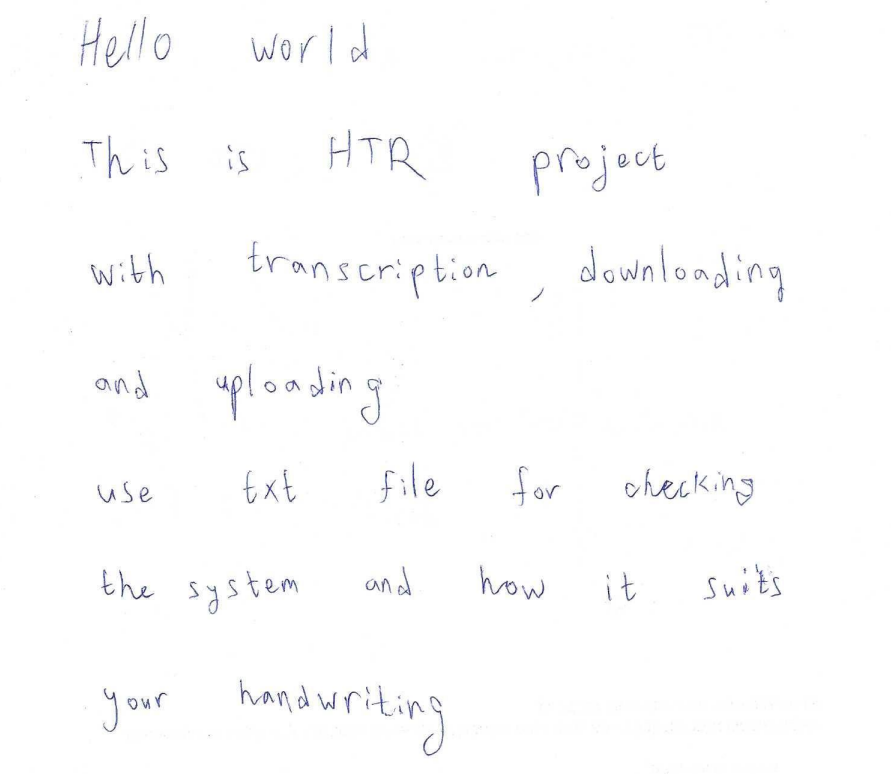 Hello world
This is HTR project
with transcription, downloading
and uploading
use txt file for checking
the system and how it suits
your handwriting